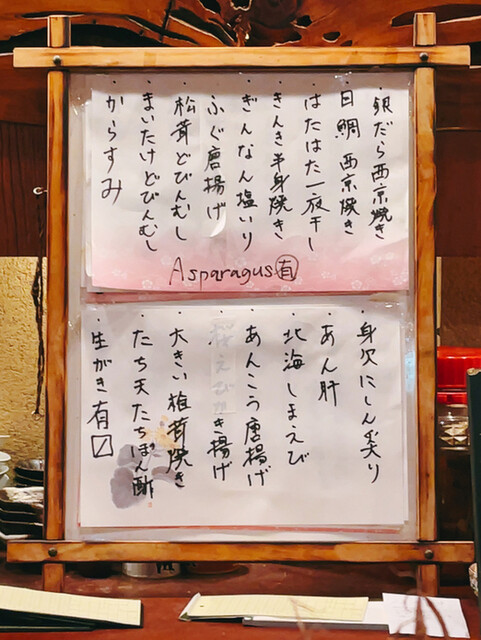 ・銀だら西京焼き
・目鯛西京焼き
・はたはた一夜干し
・きんき半身焼き
・ぎんなん塩いり
・ふぐ唐揚げ
・松茸どびんむし
・まいたけどびんむし
・からすみ
Asparagus 有
・身欠にしん炙り
・あん肝
・北海しまえび
・あんこう唐揚げ
・桜えびかき揚げ
・大きい椎茸焼き
・たち天たちぽん酢
・生がき有